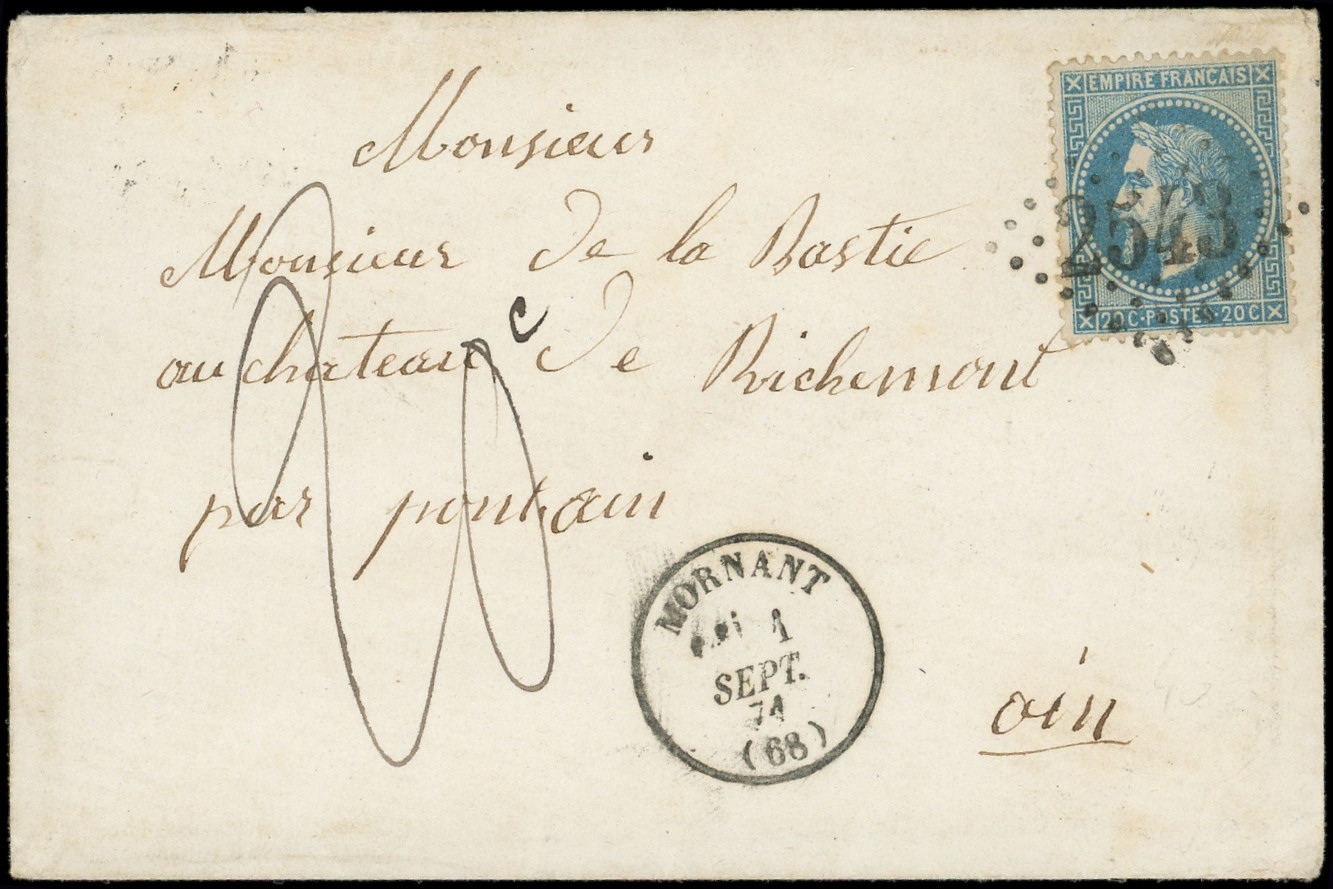 EMPIRE FRANCAIS
2543
20 C·POSTES·20 C
Monsieur
Monsieur de la Bastie
au chateau de Richemont
par pont, ain
ain
20 c
MORNANT
1
SEPT.
71
(68)